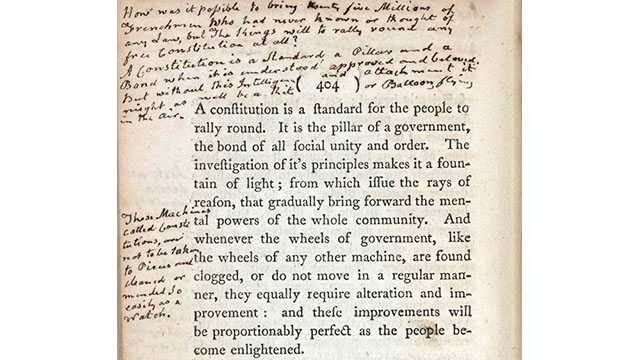 How was it poſsible to bring twenty five Millions of
Frenchmen who had never known or thought of
any Law, but the Kings will to rally round any
free Constitution at all?
A Constitution is a Standard a Pillar and a
Bond when it is understood approved and beloved.
But without this Intelligence and attachment it
might as well be a Kite or Balloon flying
in the Air.
( 404 )
A conſtitution is a ſtandard for the people to
rally round. It is the pillar of a government,
the bond of all ſocial unity and order. The
inveſtigation of it's principles makes it a foun-
tain of light; from which iſſue the rays of
reaſon, that gradually bring forward the men-
tal powers of the whole community. And
whenever the wheels of government, like
the wheels of any other machine, are found
clogged, or do not move in a regular man-
ner, they equally require alteration and im-
provement: and theſe improvements will
be proportionably perfect as the people be-
come enlightened.
These Machines
called Consti
tutions, are
not to be taken
to Pieces and
cleaned or
mended so
easily as a
Watch.